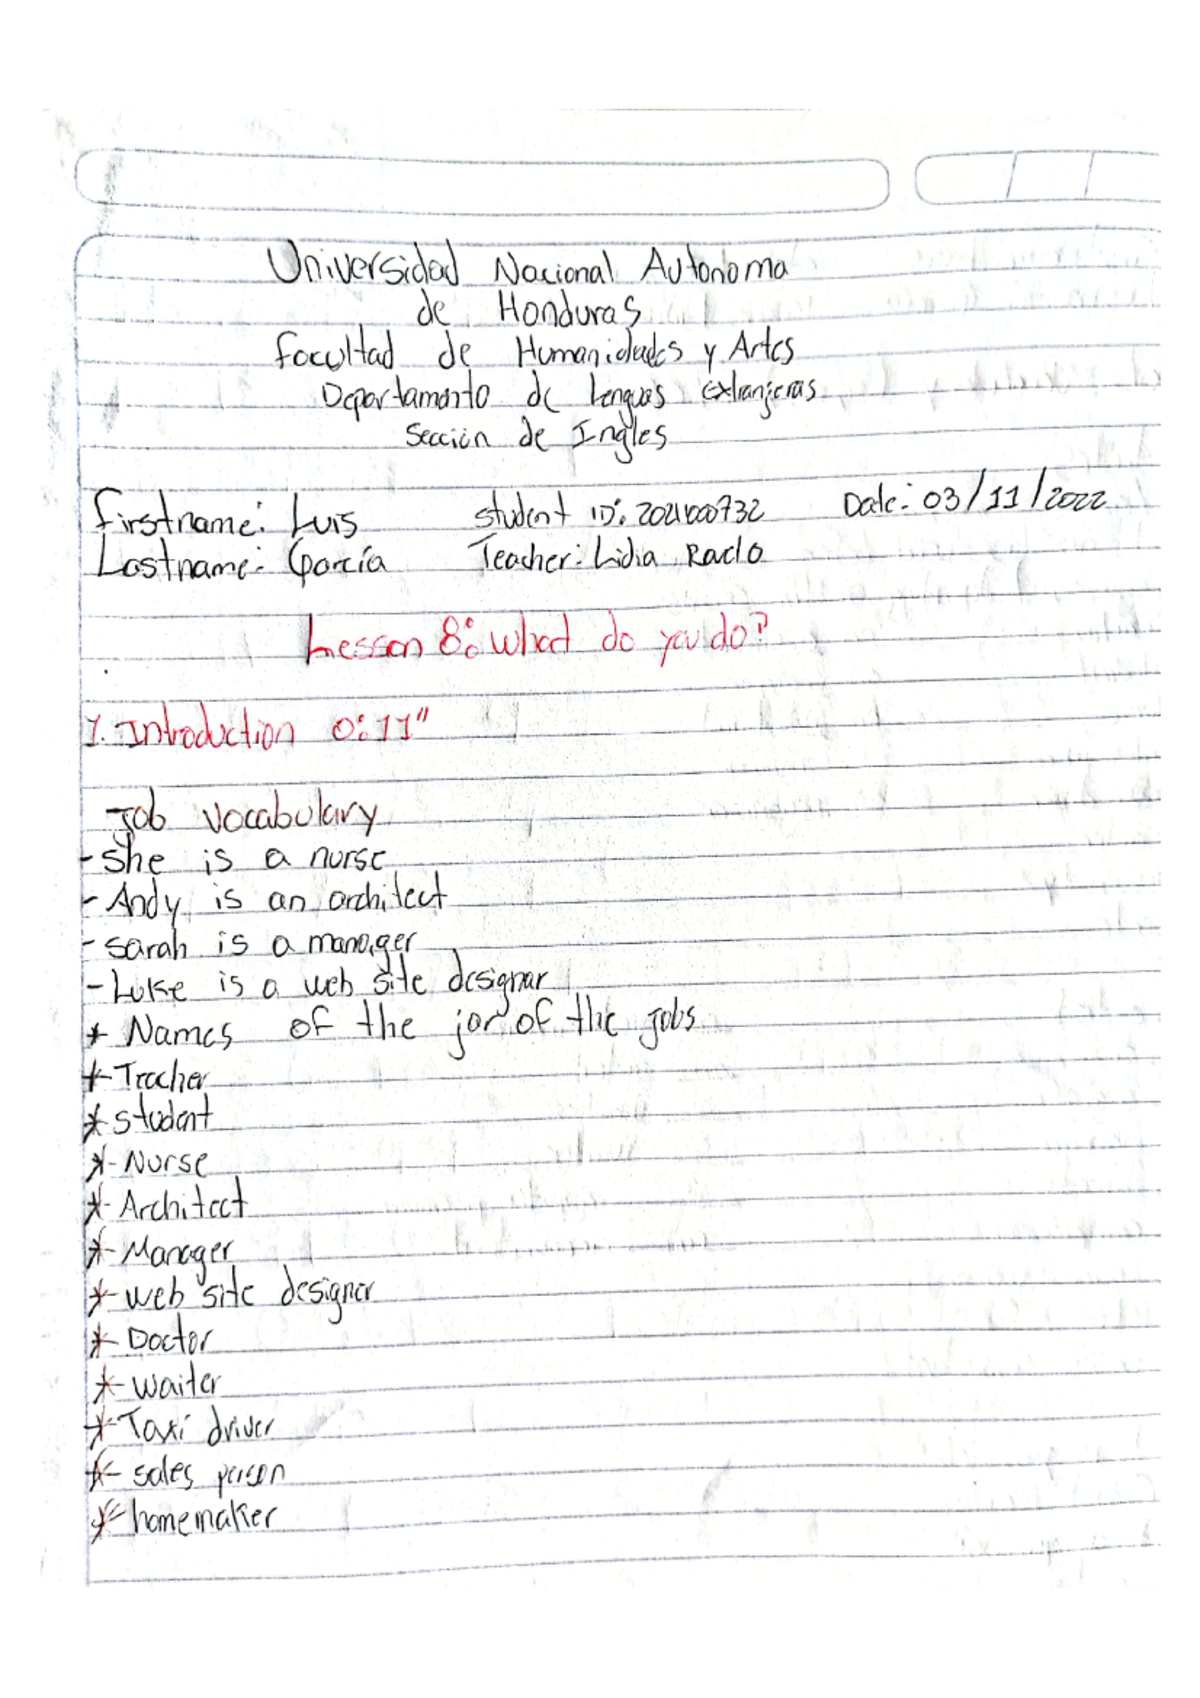 Universidad Nacional Autonoma
de Honduras
Facultad de Humanidades y Artes
Departamento de Lenguas Extranjeras
Sección de Ingles
Firstname: Luis student ID: Date: 03/11/2022
Lastname: García Teacher: Lidia
Lesson 8: What do you do?
1. Introduction 0:11"
Job vocabulary
- She is a nurse
- Andy is an architect
- Sarah is a manager
- Luke is a web site designer
* Names of the of the jobs
*- Teacher
* student
*- Nurse
*- Architect
*- Manager
*- web site designer
*- Doctor
*- waiter
*- Taxi driver
*- sales person
*- homemaker